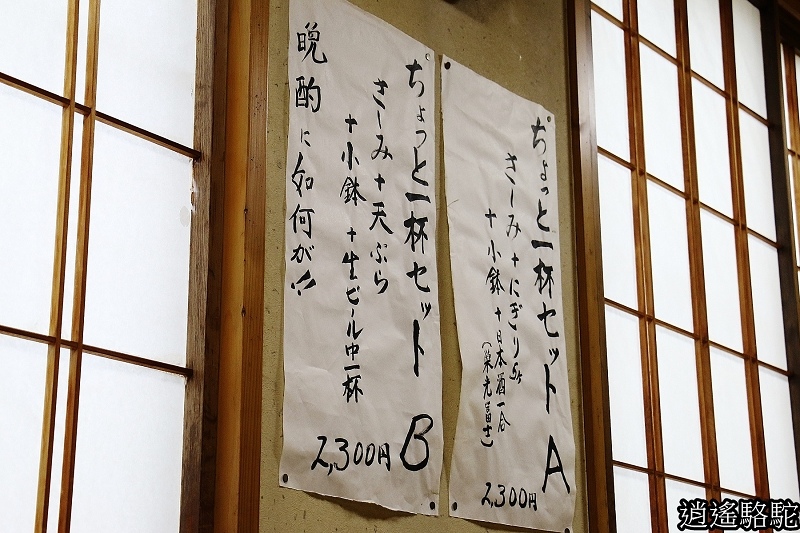 ちょっと一杯セットA
さしみ+にぎり5ヶ
+小鉢+日本酒一合
(栄光冨士)
2,300円
ちょっと一杯セットB
さしみ+天ぷら
+小鉢+生ビール中一杯
2,300円
晩酌に如何が!!
逍遙駱駝